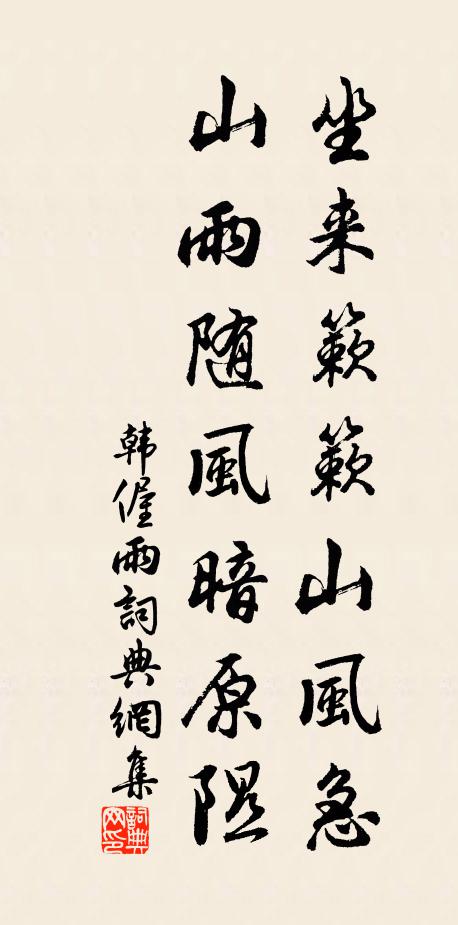 坐来簌簌山風急
山雨随風暗原隰
韩偓雨詞典網集
詞典网印